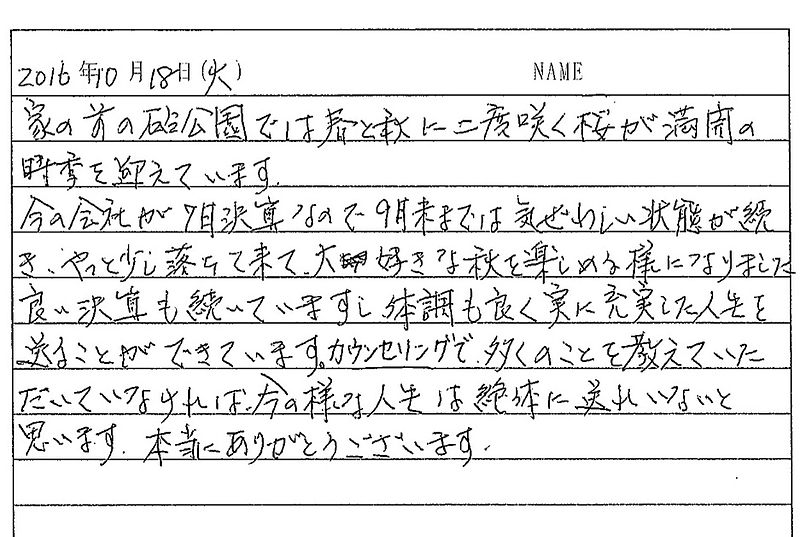 2016年10月18日(火) NAME
家の前の砧公園では春と秋に二度咲く桜が満開の
時季を迎えています。
今の会社が7月決算なので9月末までは気ぜわしい状態が続
き、やっと少し落ちて来て、大好きな秋を楽しめる様になりました
良い決算も続いていますし、体調も良く実に充実した人生を
送ることができています。カウンセリングで、多くのことを教えていた
だいていなければ、今の様な人生は絶体に送れいないと
思います。本当にありがとうございます。